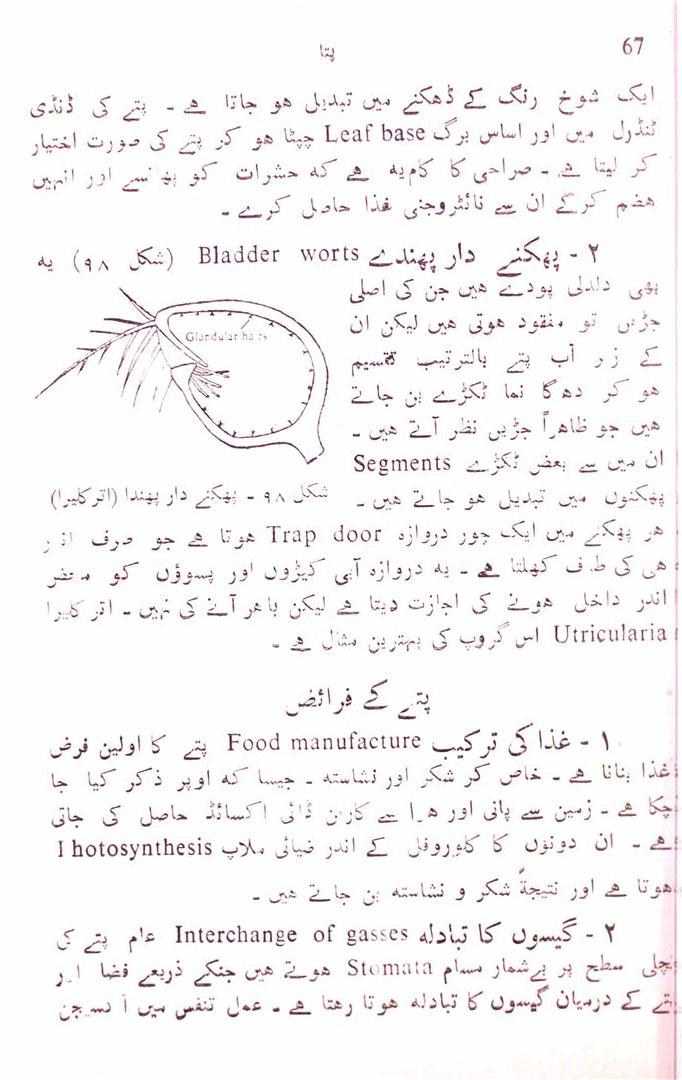 پتا
67
ایک شوخ رنگ کے ڈھکنے میں تبدیل ہو جاتا ہے ۔ پتے کی ڈنڈی
ٹنڈرل میں اور اساس برگ Leaf base چپٹا ہو کر پتے کی صورت اختیار
کر لیتا ہے ۔ صراحی کا کام یہ ہے کہ حشرات کو پھانسے اور انہیں
ہضم کرکے ان سے نائٹروجنی غذا حاصل کرے ۔
۲ - پھکنے دار پھندے Bladder worts (شکل ۹۸) یہ
بھی دلدلی پودے ہیں جن کی اصلی
جڑیں تو مفقود ہوتی ہیں لیکن ان
کے زیر آب پتے بالترتیب تقسیم
ہو کر دھاگا نما ٹکڑے بن جاتے
ہیں جو ظاہراً جڑیں نظر آتے ہیں ۔
ان میں سے بعض ٹکڑے Segments
پھکنوں میں تبدیل ہو جاتے ہیں ۔
Glandular hairs
شکل ۹۸ - پھکنے دار پھندا (اترکلیرا)
ہر پھکنے میں ایک چور دروازہ Trap door ہوتا ہے جو صرف اندر
ہی کی طرف کھلتا ہے ۔ یہ دروازہ آبی کیڑوں اور پسوؤں کو
اندر داخل ہونے کی اجازت دیتا ہے لیکن باہر آنے کی نہیں ۔ اترکلیرا
Utricularia اس گروپ کی بہترین مثال ہے ۔
پتے کے فرائض
۱ - غذا کی ترکیب Food manufacture پتے کا اولین فرض
غذا بنانا ہے ۔ خاص کر شکر اور نشاستہ ۔ جیسا کہ اوپر ذکر کیا جا
چکا ہے ۔ زمین سے پانی اور ہوا سے کاربن ڈائی اکسائڈ حاصل کی جاتی
ہے ۔ ان دونوں کا کلوروفل کے اندر ضیائی ملاپ Photosynthesis
ہوتا ہے اور نتیجۃً شکر و نشاستہ بن جاتے ہیں ۔
۲ - گیسوں کا تبادلہ Interchange of gasses عام پتے کی
نچلی سطح پر بےشمار مسام Stomata ہوتے ہیں جنکے ذریعے فضا اور
پتے کے درمیان گیسوں کا تبادلہ ہوتا رہتا ہے ۔ عمل تنفس میں آکسیجن